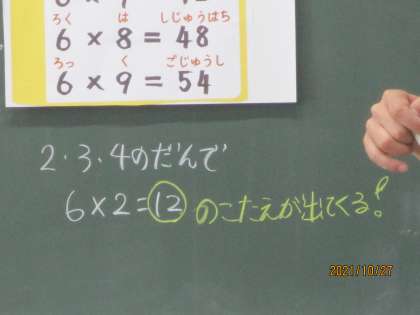 ろく は しじゅうはち
6 × 8 = 48
ろっ く ごじゅうし
6 × 9 = 54
2・3・4のだんで
6×2=12のこたえが出てくる!
2021/10/27